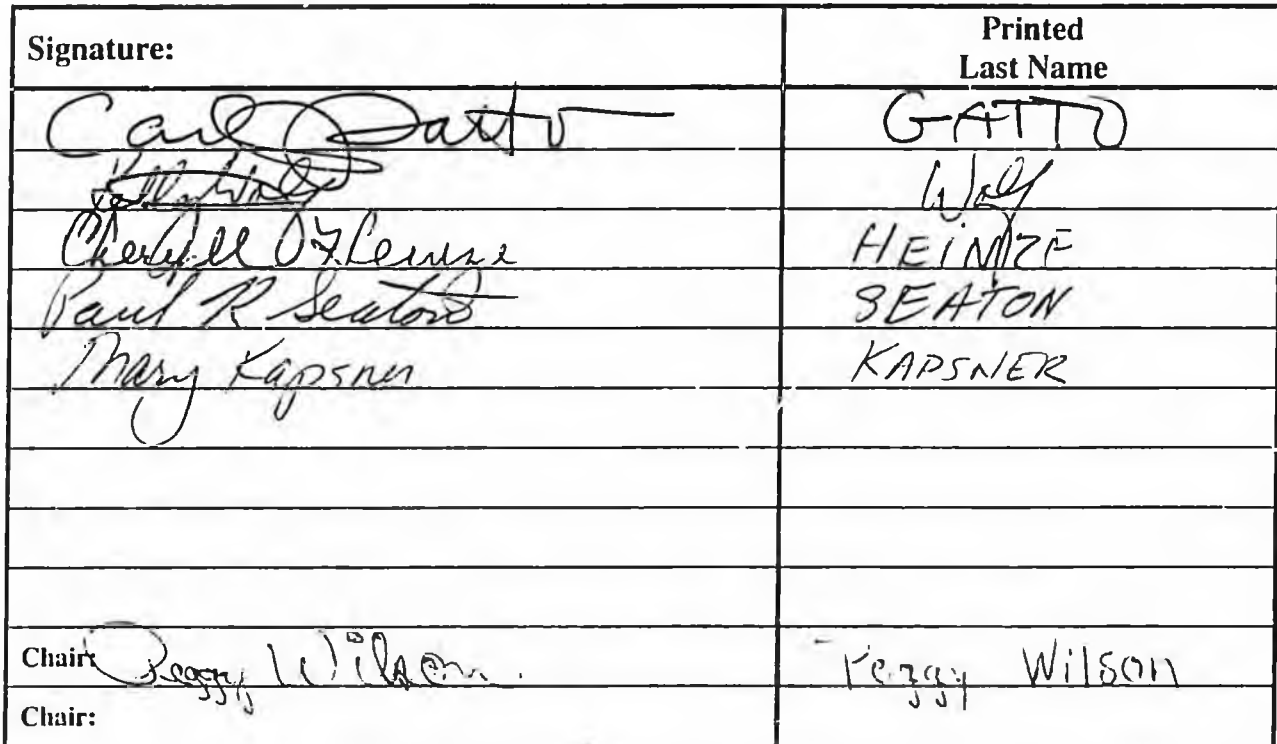 Signature: Printed
Last Name
Carl Gatto GATTO
Kelly Wolf Wolf
Cheryll Heinze HEINZE
Paul R Seaton SEATON
Mary Kapsner KAPSNER
Chair: Peggy Wilson Peggy Wilson
Chair: